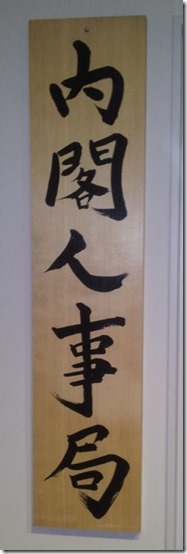 内閣人事局